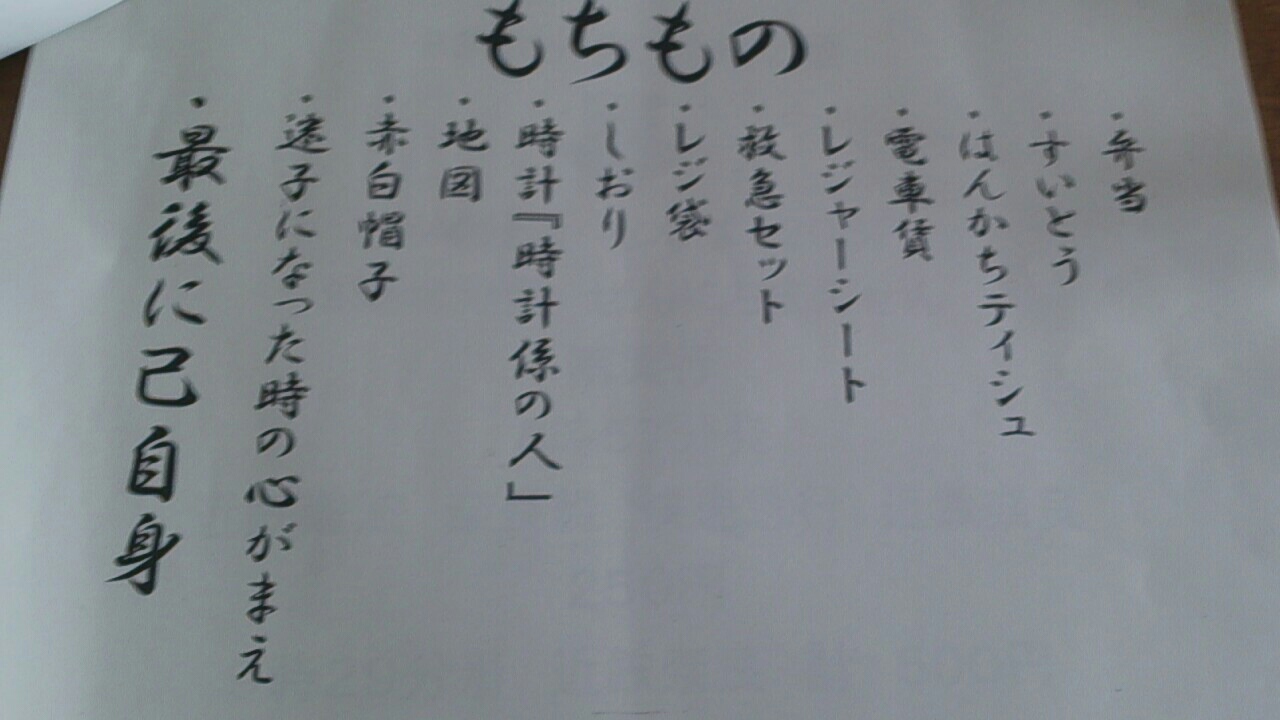 もちもの
・弁当
・すいとう
・はんかちティシュ
・電車賃
・レジャーシート
・救急セット
・レジ袋
・しおり
・時計『時計係の人」
・地図
・赤白帽子
・迷子になった時の心がまえ
・最後に己自身